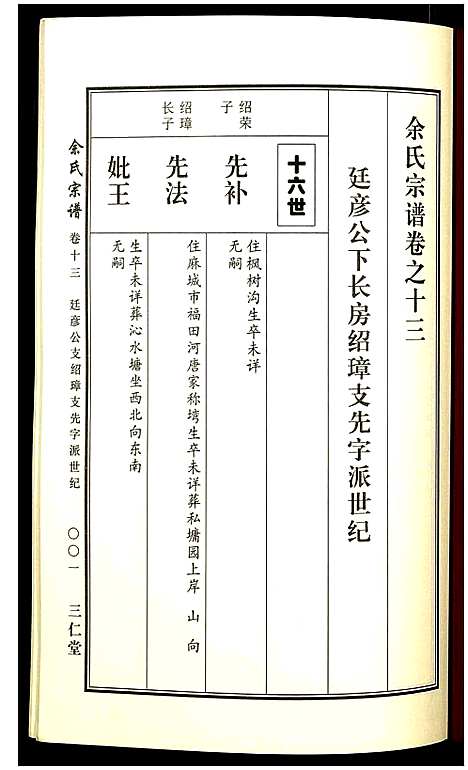 余氏宗谱卷之十三
廷彦公下长房绍璋支先字派世纪
十六世
绍荣
子
先补
住枫树沟生卒未详
无嗣
绍璋
长子
先法
住麻城市福田河唐家称塆生卒未详葬私墉园上岸 山 向
妣王
生卒未详葬沁水塘坐西北向东南
无嗣
余氏宗谱 卷十三 廷彦公支绍璋支先字派世纪 〇〇一 三仁堂